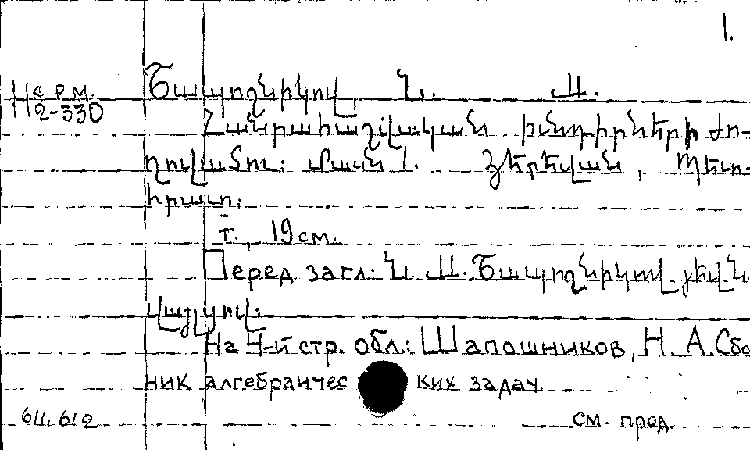 1.
Шарм. Շապոշնիկով, Ն. Ա.
2-330
Հանրահաշվական խնդիրների ժո-
ղովածու: Մասն 1. Յերեվան, Պետ-
հրատ.
т. , 19 см.
Перед загл.: Ն. Ա. Շապոշնիկով յեվ Ն.
Վալցով.
На 4-й стр. обл.: Шапошников, Н. А. Сбо
ник алгебраичес ких задач
см. пред.